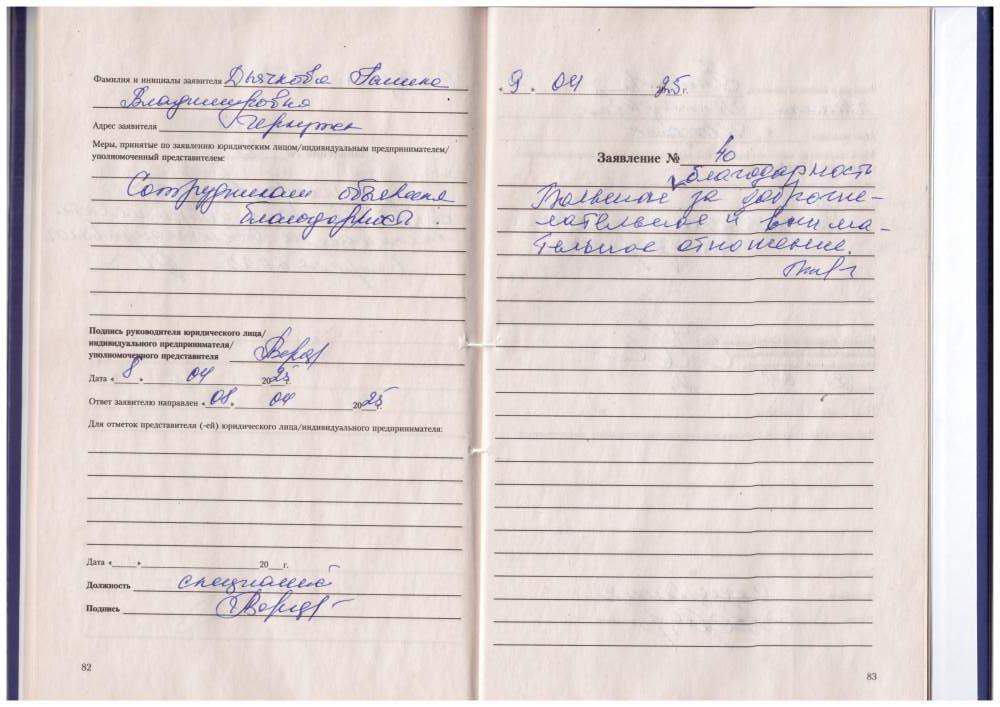 Фамилия и инициалы заявителя Дьячкова Галина
Владимировна
Адрес заявителя
Меры, принятые по заявлению юридическим лицом/индивидуальным предпринимателем/
уполномоченный представителем:
Сотрудникам объявлена
благодарность.
Подпись руководителя юридического лица/
индивидуального предпринимателя/
уполномоченного представителя
Дата «8» 04 2025г.
Ответ заявителю направлен «08» 04 2025г.
Для отметок представителя (-ей) юридического лица/индивидуального предпринимателя:
Дата «___» 20__г.
Должность специалист
Подпись
82
«9» 04 25г.
Заявление № 40
благодарность
Большое за доброже-
лательное и внима-
тельное отношение.
83